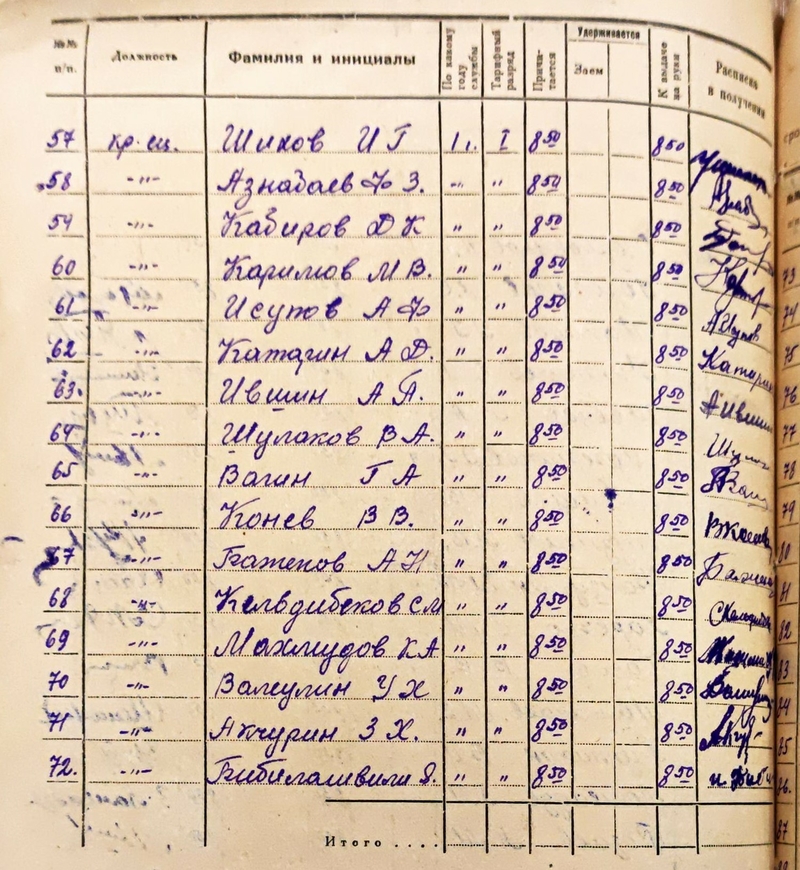 №№ п/п. Должность Фамилия и инициалы По какому году службы Тарифный разряд Причитается Удерживается Заем К выдаче на руки Расписка в получении
57 кр-ец. Шихов И Г 1 г. I 8 50 8 50
58 -"- Азнабаев Ф З. -"- " 8 50 8 50
59 -"- Кабиров Д К " " 8 50 8 50
60 -"- Каримов М В. " " 8 50 8 50 73
61 -"- Исупов А Ф " " 8 50 8 50 АИсупов 74
62 -"- Катагин А Д. " " 8 50 8 50 Катагин 75
63. -"- Ившин А П. " " 8 50 8 50 АИвшин 76
64 -"- Шулаков В А. " " 8 50 8 50 77
65 -"- Вагин Г А " " 8 50 8 50 78
66 -"- Конев В В. " " 8 50 8 50 79
67 -"- Баженов А Н " " 8 50 8 50 80
68 -"- Кельдибеков С М " " 8 50 8 50 81
69 -"- Махмудов К А " " 8 50 8 50 82
70 -"- Валеулин У Х " " 8 50 8 50 83
71 -"- Акчурин З Х. " " 8 50 8 50 84
72. -"- Бибилашвили Я. " " 8 50 8 50 85
86.
Итого . . . . 87